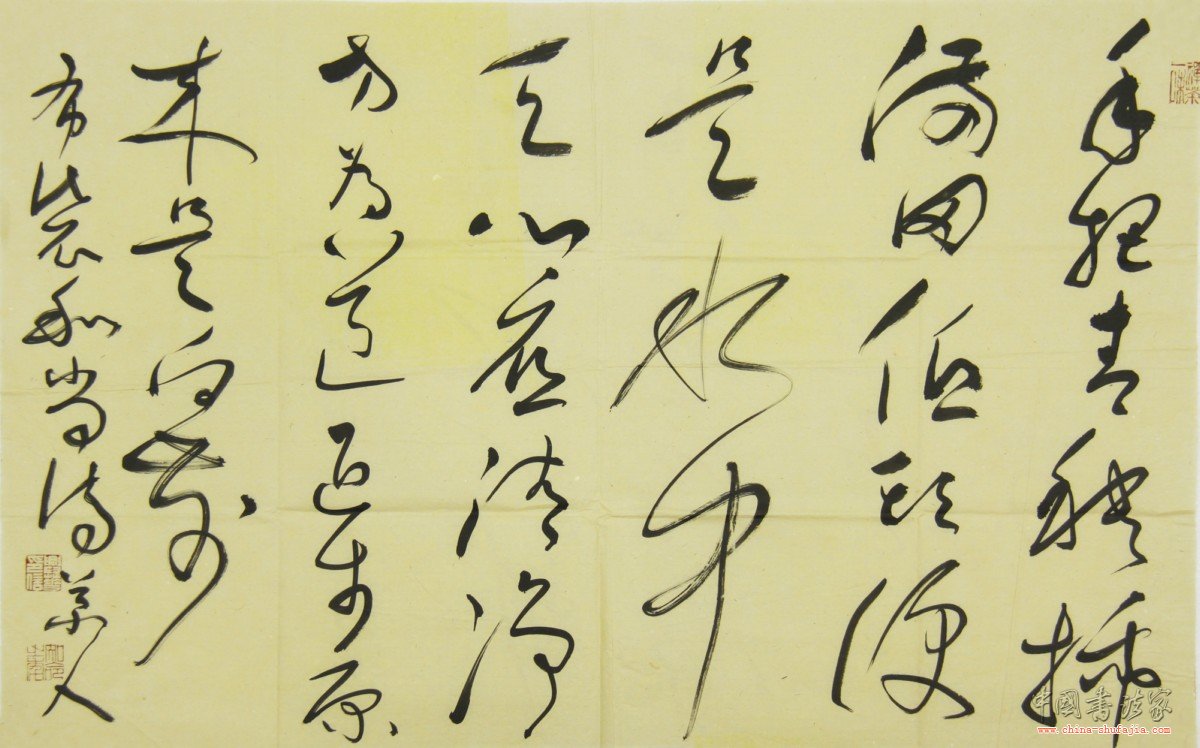 手把青秧插
滿田低頭便
是水中
天心底清淨
方為道退步原
來是向前
布袋和尚詩
中国书法家
www.china-shufajia.com